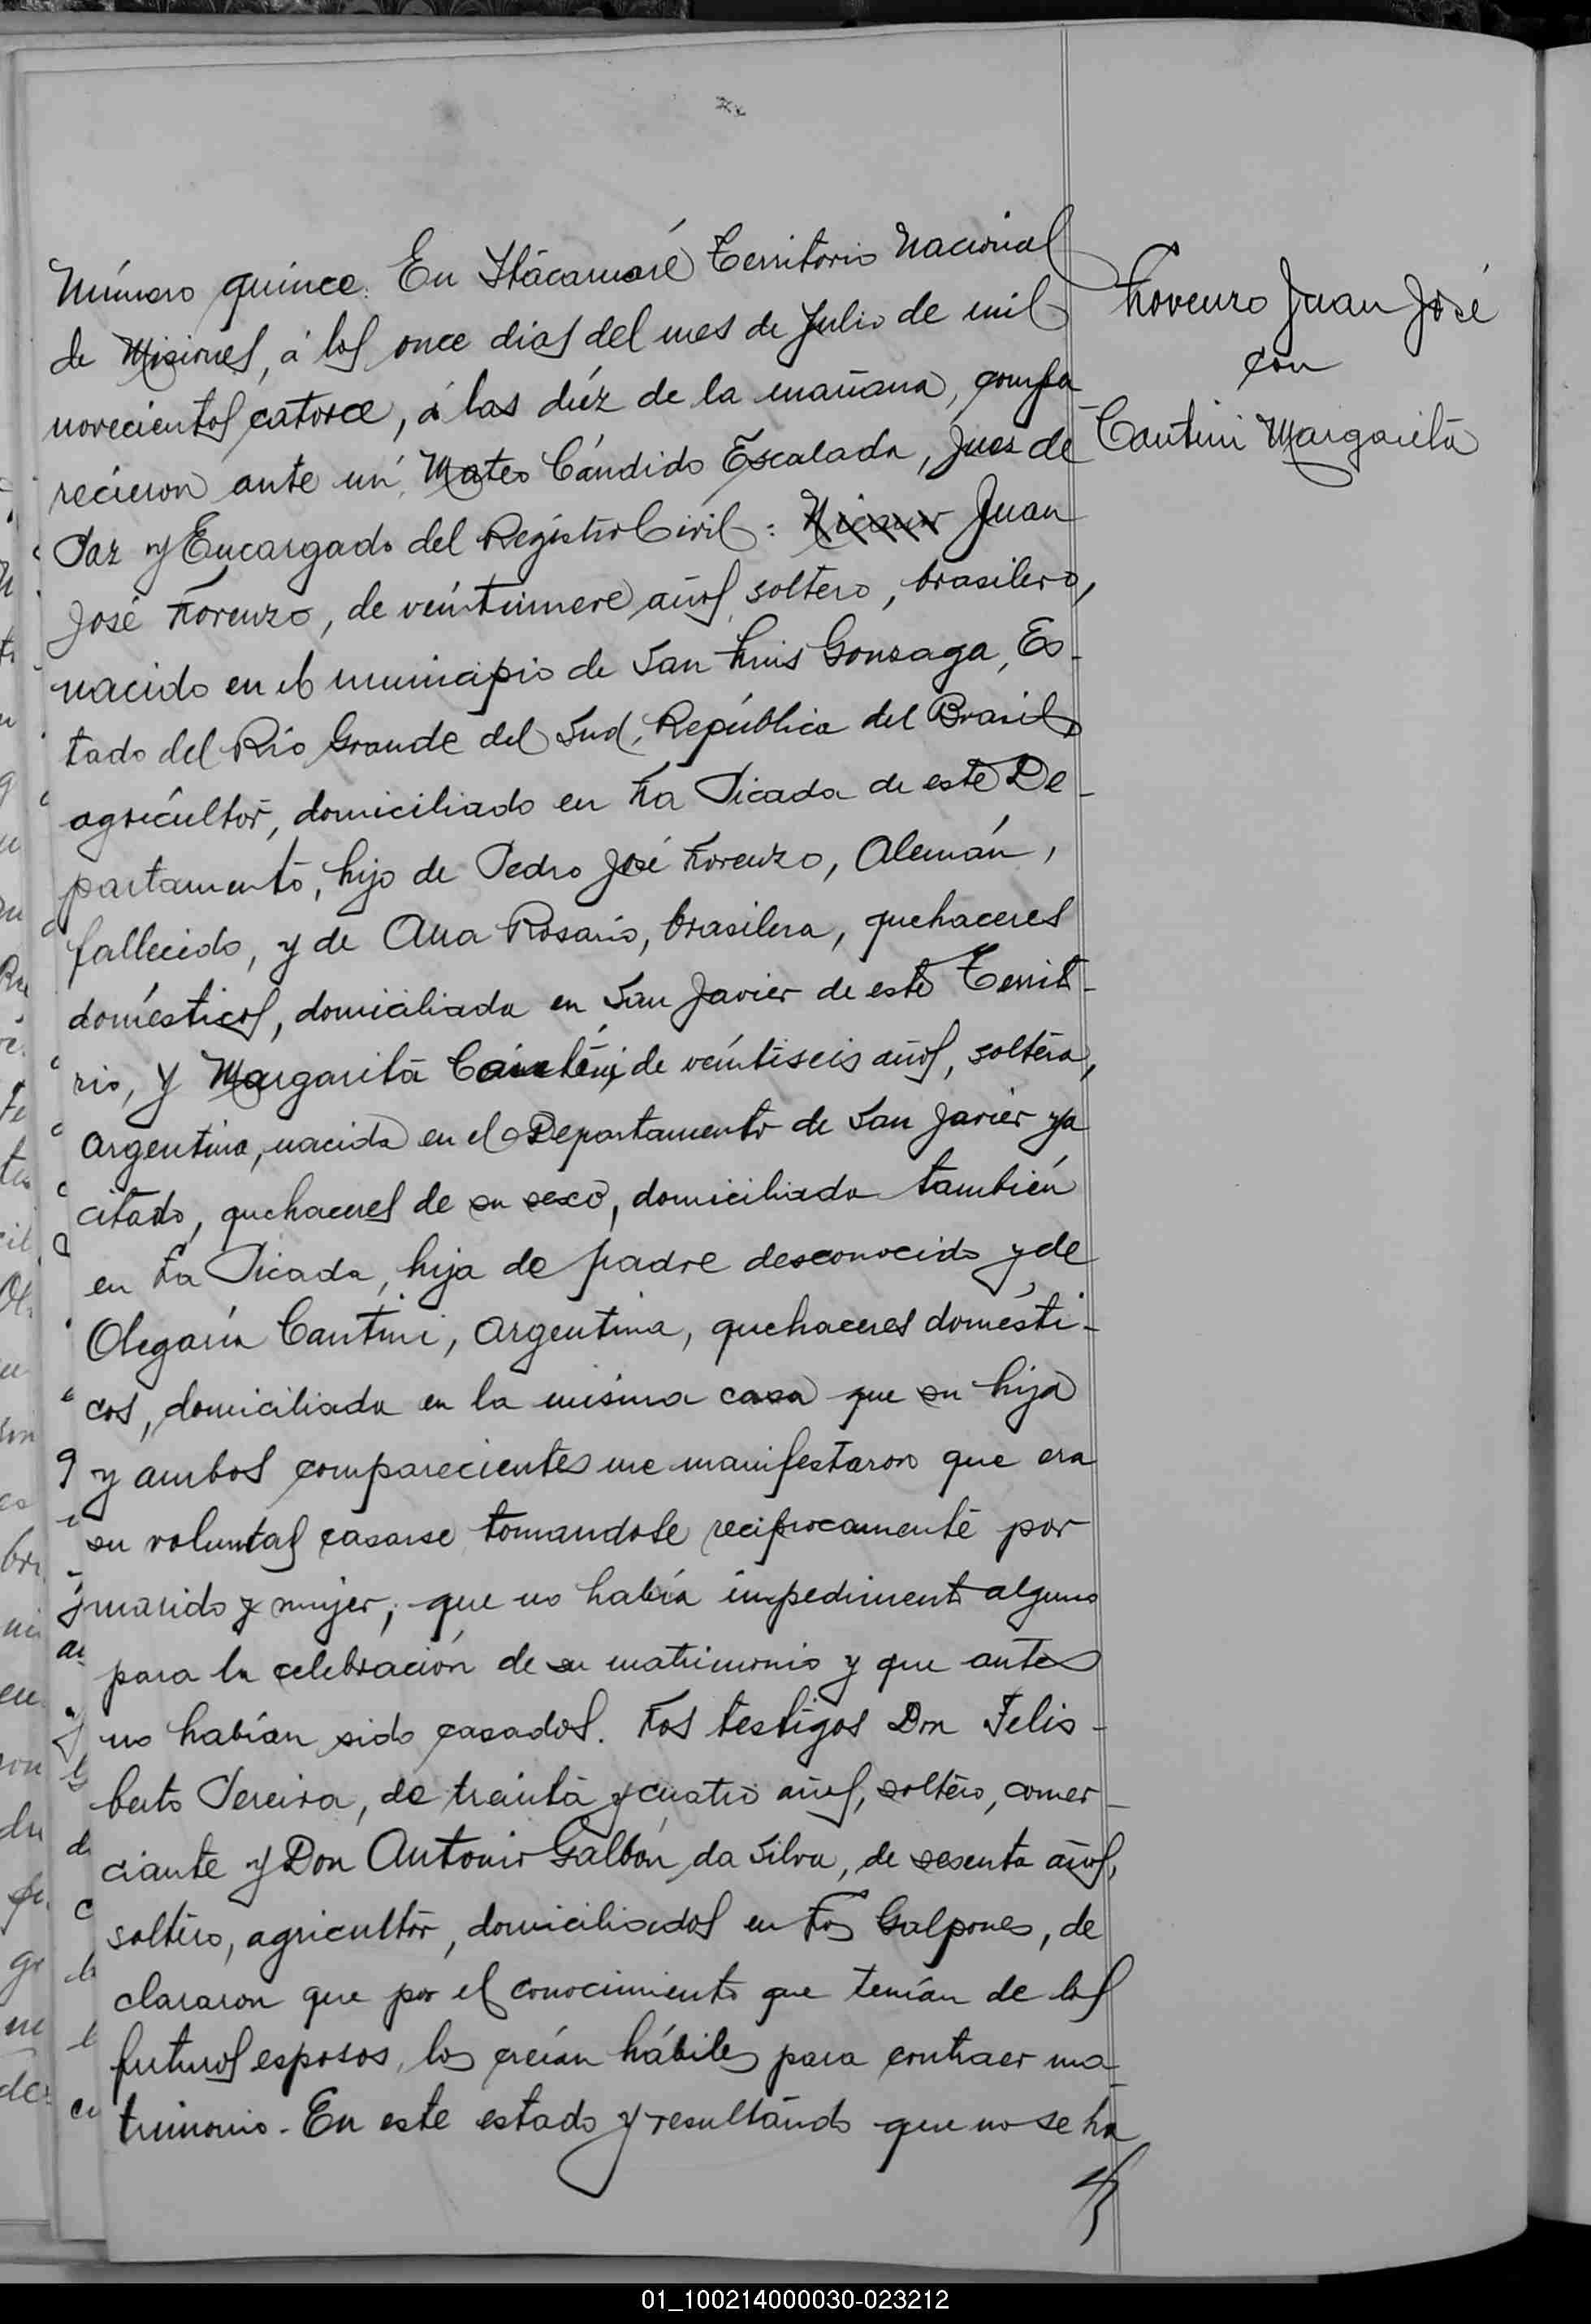 Número quince. En Itácaruaré Territorio Nacional
de Misiones, á los once dias del mes de Julio de mil
novecientos catorce, á las diéz de la mañana, compa-
recieron ante mí, Mateo Cándido Escalada, Juez de
Paz y Encargado del Registro Civil: Juan
José Lorenzo, de veintinueve años, soltero, brasilero,
nacido en el municipio de San Luis Gonzaga, Es-
tado del Río Grande del Sud, República del Brasil,
agricultor, domiciliado en La Picada de este De-
partamento, hijo de Pedro José Lorenzo, Alemán,
fallecido, y de Ana Rosario, brasilera, quehaceres
domésticos, domiciliada en San Javier de este Territo-
rio, y Margarita Cantini, de veintiseis años, soltera,
Argentina, nacida en el Departamento de San Javier ya
citado, quehaceres de su sexo, domiciliada también
en La Picada, hija de padre desconocido y de
Olegaria Cantini, Argentina, quehaceres domésti-
cos, domiciliada en la misma casa que su hija
y ambos comparecientes me manifestaron que era
su voluntad casarse tomandose reciprocamente por
marido y mujer, que no había impedimento alguno
para la celebración de su matrimonio y que antes
no habían sido casados. Los testigos Don Felis-
berto Pereira, de treinta y cuatro años, soltero, comer-
ciante y Don Antonio Galbón da Silva, de sesenta años,
soltero, agricultor, domiciliados en Los Galpones, de
clararon que por el conocimiento que tenían de los
futuros esposos, los creían hábiles para contraer ma-
trimonio. En este estado y resultando que no se ha
Lorenzo Juan José
con
Cantini Margarita
01_100214000030-023212